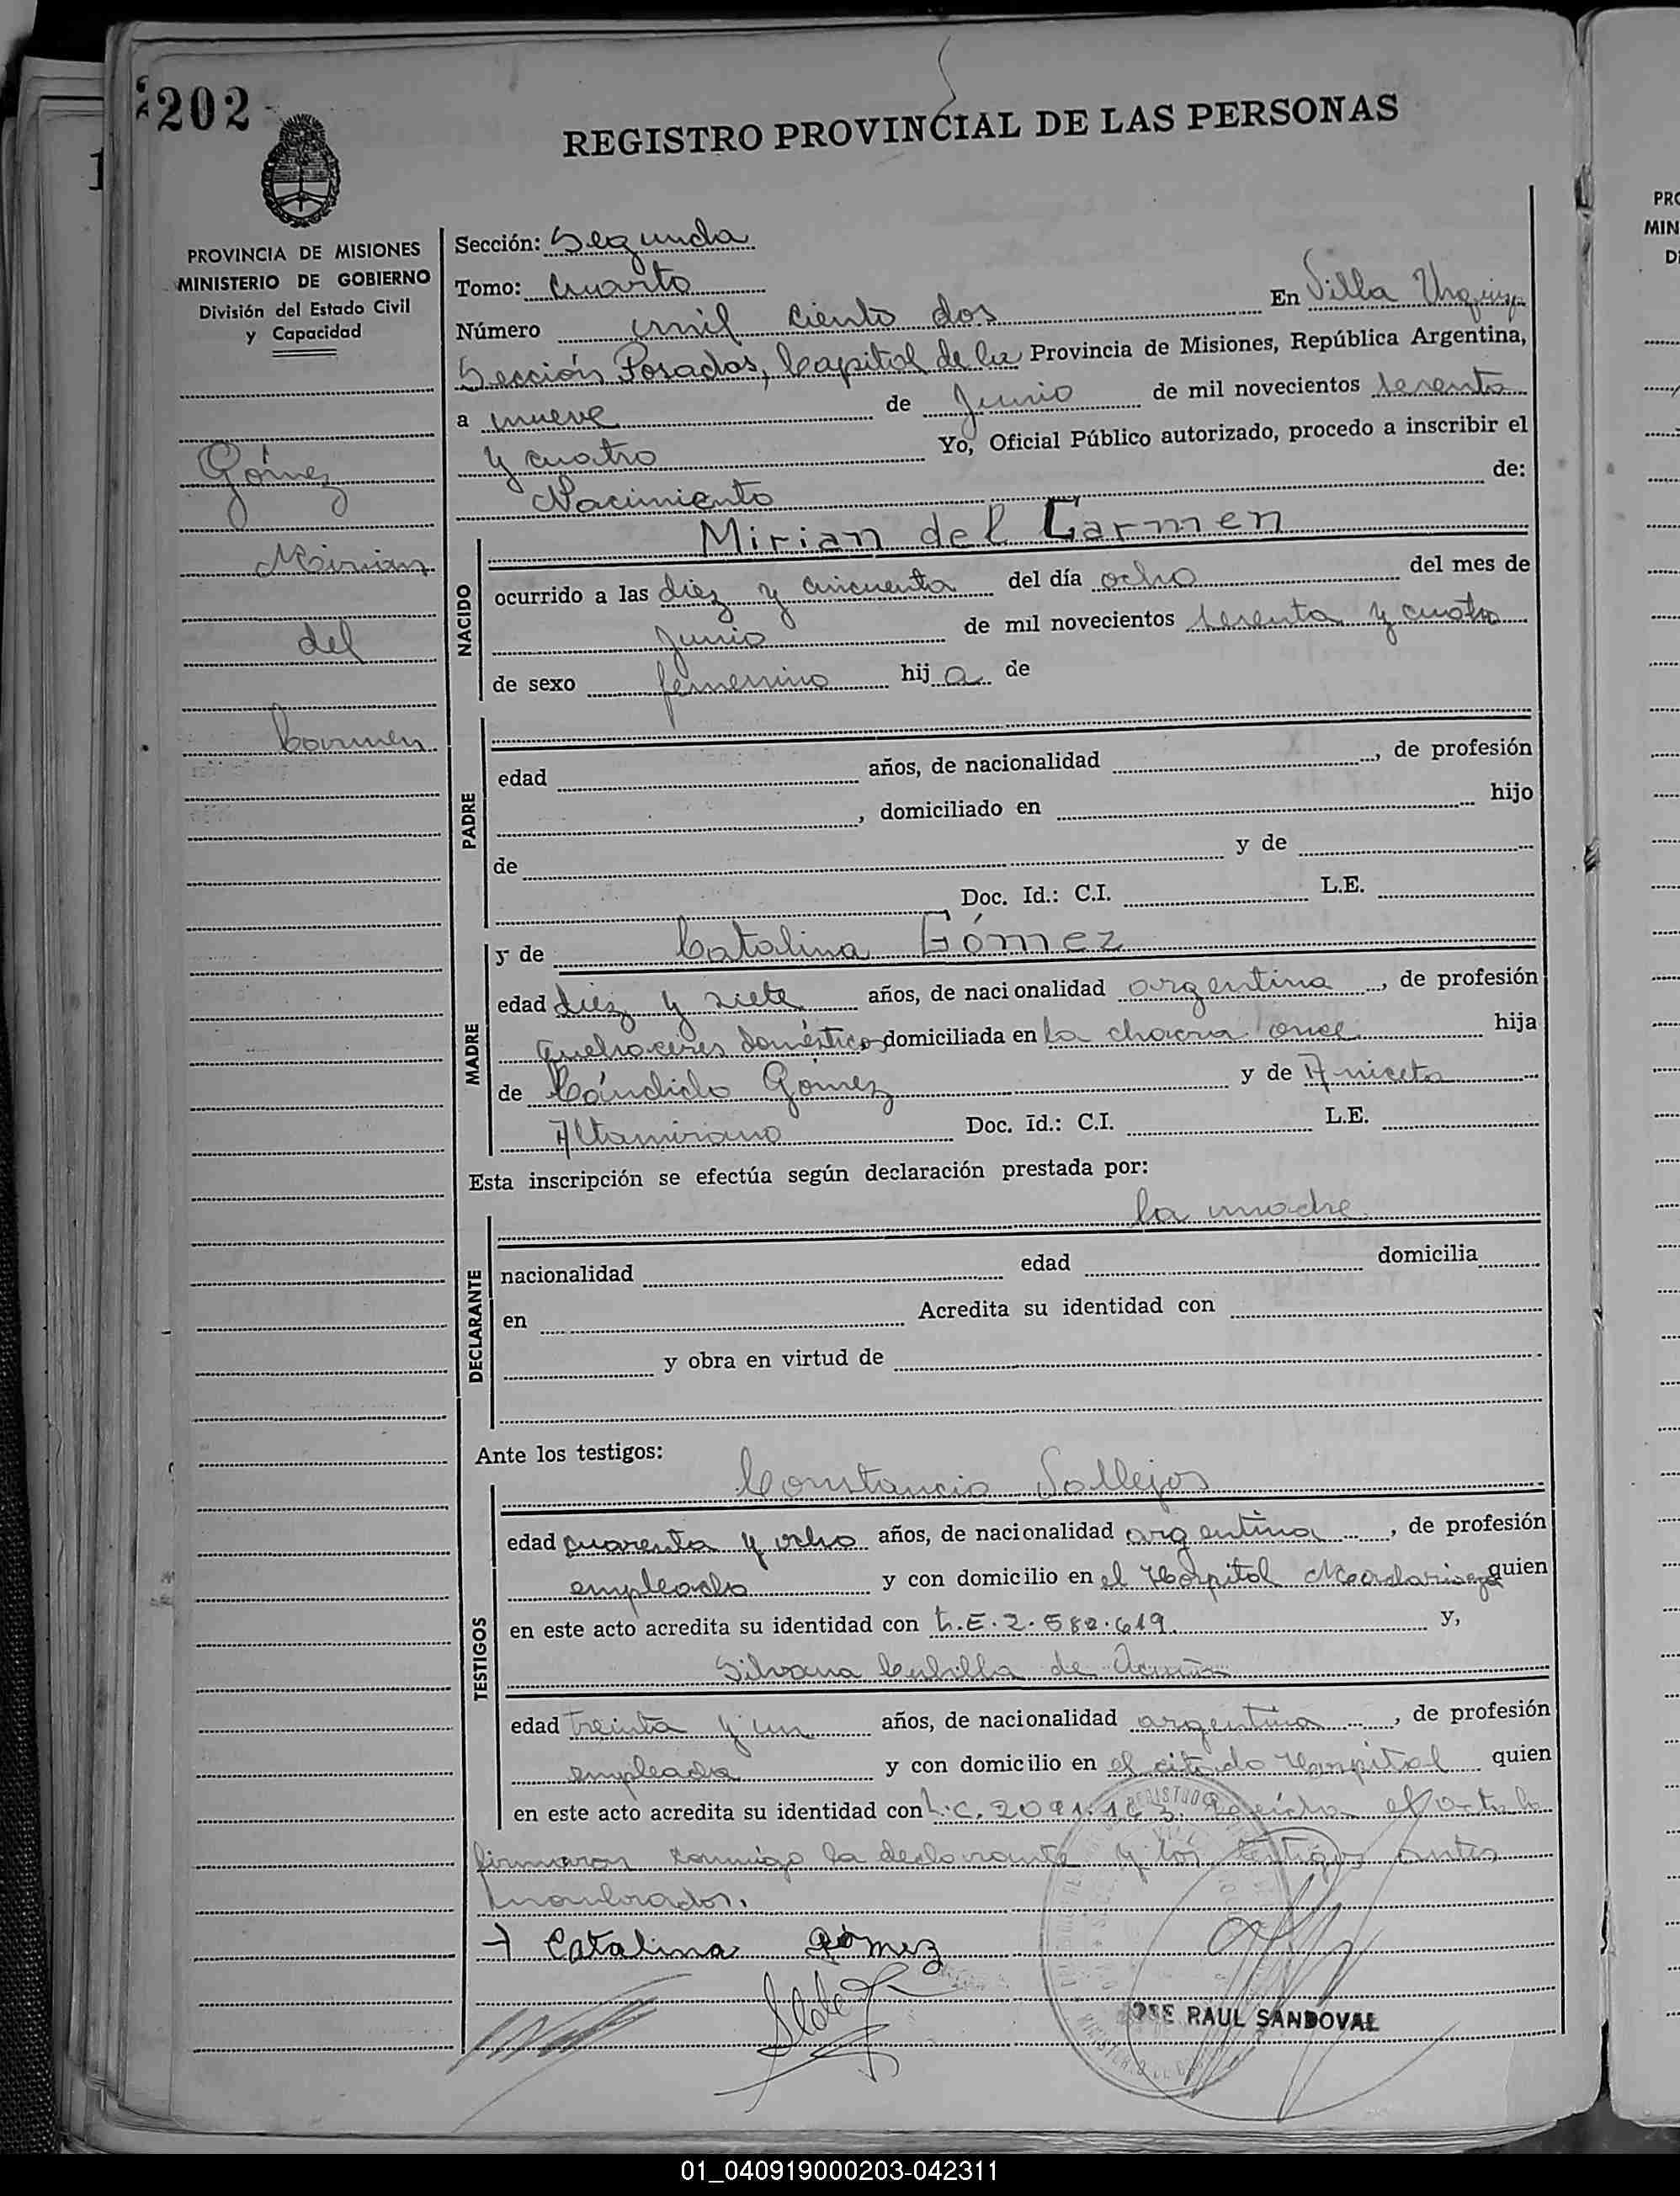 202
REGISTRO PROVINCIAL DE LAS PERSONAS
PROVINCIA DE MISIONES
MINISTERIO DE GOBIERNO
División del Estado Civil
y Capacidad
Gómez
Mirian
del
Carmen
Sección: Segunda
Tomo: Cuarto
Número mil ciento dos En Villa Urquiza
Sección Posadas, Capital de la Provincia de Misiones, República Argentina,
a nueve de Junio de mil novecientos setenta
y cuatro Yo, Oficial Público autorizado, procedo a inscribir el
Nacimiento de:
NACIDO
Mirian del Carmen
ocurrido a las diez y cincuenta del día ocho del mes de
Junio de mil novecientos setenta y cuatro
de sexo femenino hij a de
PADRE
edad años, de nacionalidad , de profesión
, domiciliado en hijo
de y de
Doc. Id.: C.I. L.E.
MADRE
y de Catalina Gómez
edad diez y siete años, de nacionalidad argentina , de profesión
quehaceres doméstico domiciliada en la chacra once hija
de Cándido Gómez y de Aniceta
Altamirano Doc. Id.: C.I. L.E.
Esta inscripción se efectúa según declaración prestada por:
DECLARANTE
la madre
nacionalidad edad domicilia
en Acredita su identidad con
y obra en virtud de
Ante los testigos:
TESTIGOS
Constancio Vallejos
edad cuarenta y ocho años, de nacionalidad argentina , de profesión
empleado y con domicilio en el Hospital Madariaga quien
en este acto acredita su identidad con L.E. 2.582.619 y,
Silvana Cubilla de Acuña
edad treinta y un años, de nacionalidad argentina , de profesión
empleada y con domicilio en el citado Hospital quien
en este acto acredita su identidad con L.C. 2091.163. el acta la
firmaron conmigo la declarante y los testigos antes
nombrados.
Catalina Gómez
JOSE RAUL SANDOVAL
PRO
MIN
D
01_040919000203-042311